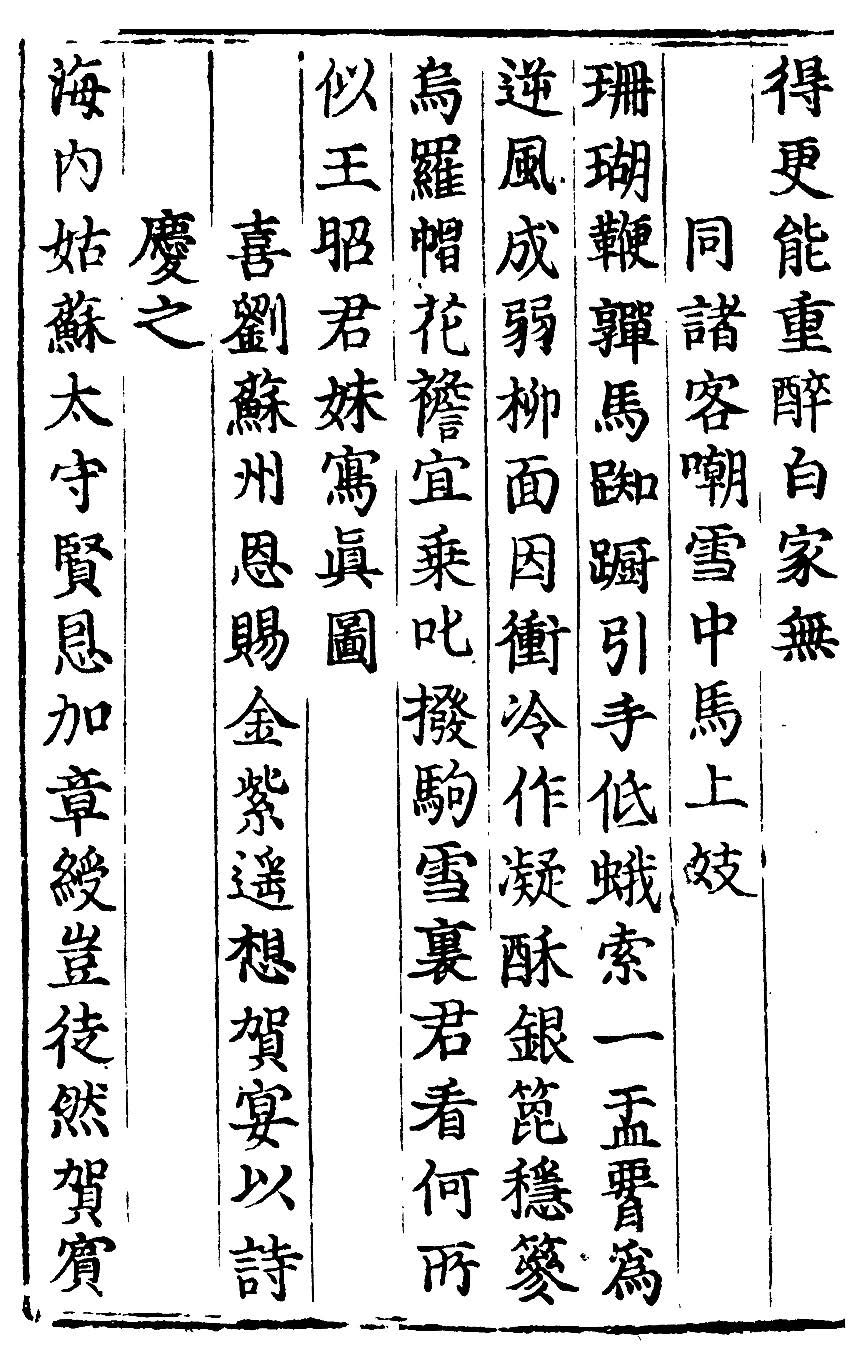 得更能重醉白家無
同諸客嘲雪中馬上妓
珊瑚鞭嚲馬踟蹰引手低蛾索一盂腰爲
逆風成弱柳面因衝冷作凝酥銀篦穩篸
烏羅帽花襜宜乗叱撥駒雪裏君看何所
似王昭君妹寫眞圖
喜劉蘇州恩賜金紫遥想賀宴以詩
慶之
海内姑蘇太守賢恩加章綬豈徒然賀賔